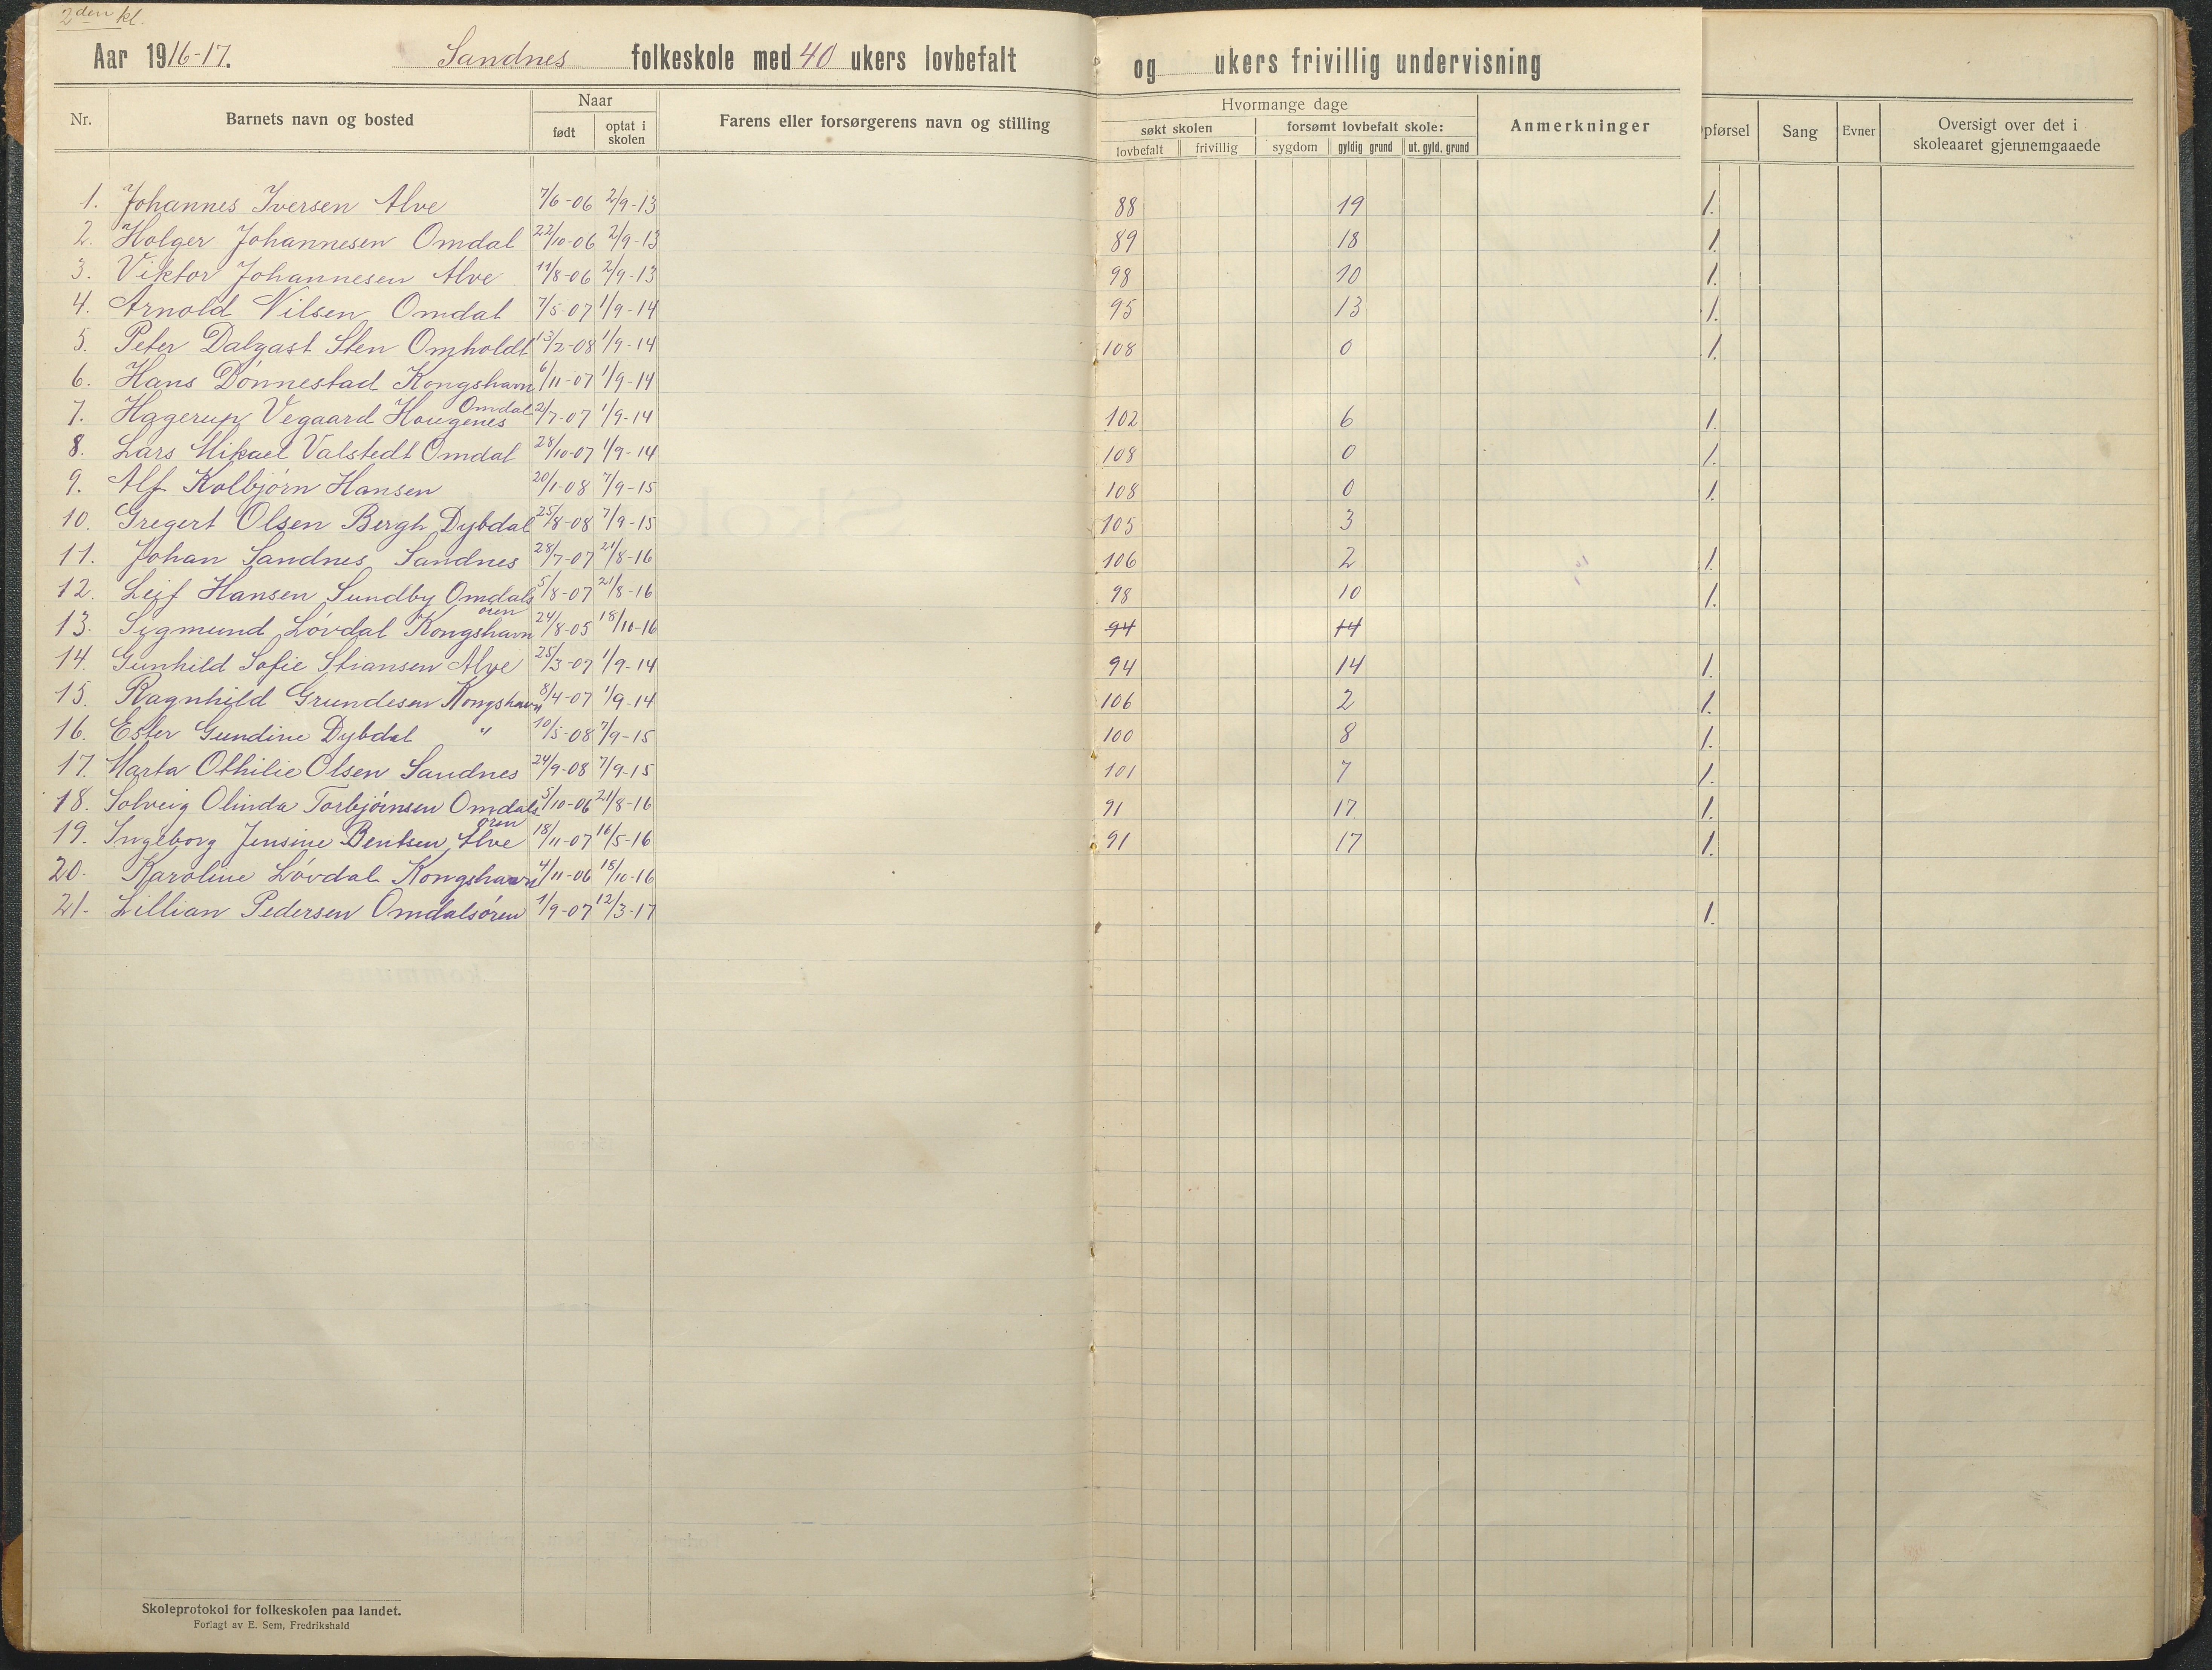 2den kl.
Aar 1916-17. Sandnes folkeskole med 40 ukers lovbefalt og ukers frivillig undervisning
Nr. Barnets navn og bosted Naar født optat i skolen Farens eller forsørgerens navn og stilling Hvormange dage søkt skolen lovbefalt frivillig forsømt lovbefalt skole: sygdom gyldig grund ut. gyld. grund Anmerkninger pførsel Sang Evner Oversigt over det i skoleaaret gjennemgaaede
1. Johannes Iversen Alve 7/6-06 2/9-13 88 19 1.
2. Holger Johannesen Omdal 22/10-06 2/9-13 89 18 1.
3. Viktor Johannesen Alve 11/8-06 2/9-13 98 10 1.
4. Arnold Nilsen Omdal 7/5-07 1/9-14 95 13 1.
5. Peter Dalgast Sten Omholdt 13/2-08 1/9-14 108 0 1.
6. Hans Dønnestad Kongshavn 6/11-07 1/9-14
7. Hagerup Vegaard Hougenes Omdal 2/7-07 1/9-14 102 6 1.
8. Lars Mikael Valstedt Omdal 28/10-07 1/9-14 108 0 1.
9. Alf Kolbjørn Hansen 20/1-08 7/9-15 108 0 1.
10. Gregert Olsen Bergh Dybdal 25/8-08 7/9-15 105 3
11. Johan Sandnes Sandnes 28/7-07 21/8-16 106 2 1.
12. Leif Hansen Sundby Omdalsøren 5/8-07 21/8-16 98 10 1.
13. Sigmund Løvdal Kongshavn 24/8-05 18/10-16 94 14
14. Gunhild Sofie Stiansen Alve 25/3-07 1/9-14 94 14 1.
15. Ragnhild Grundesen Kongshavn 8/4-07 1/9-14 106 2 1.
16. Ester Gundine Dybdal " 10/5-08 7/9-15 100 8 1.
17. Marta Othilie Olsen Sandnes 24/9-08 7/9-15 101 7 1.
18. Solveig Olinda Torbjørnsen Omdalsøren 5/10-06 21/8-16 91 17 1.
19. Ingeborg Jensine Bentsen Alve 18/11-07 16/5-16 91 17 1.
20. Karoline Løvdal Kongshavn 4/11-06 18/10-16
21. Lillian Pedersen Omdalsøren 1/9-07 12/3-17 1.
Skoleprotokol for folkeskolen paa landet.
Forlagt av E. Sem, Fredrikshald